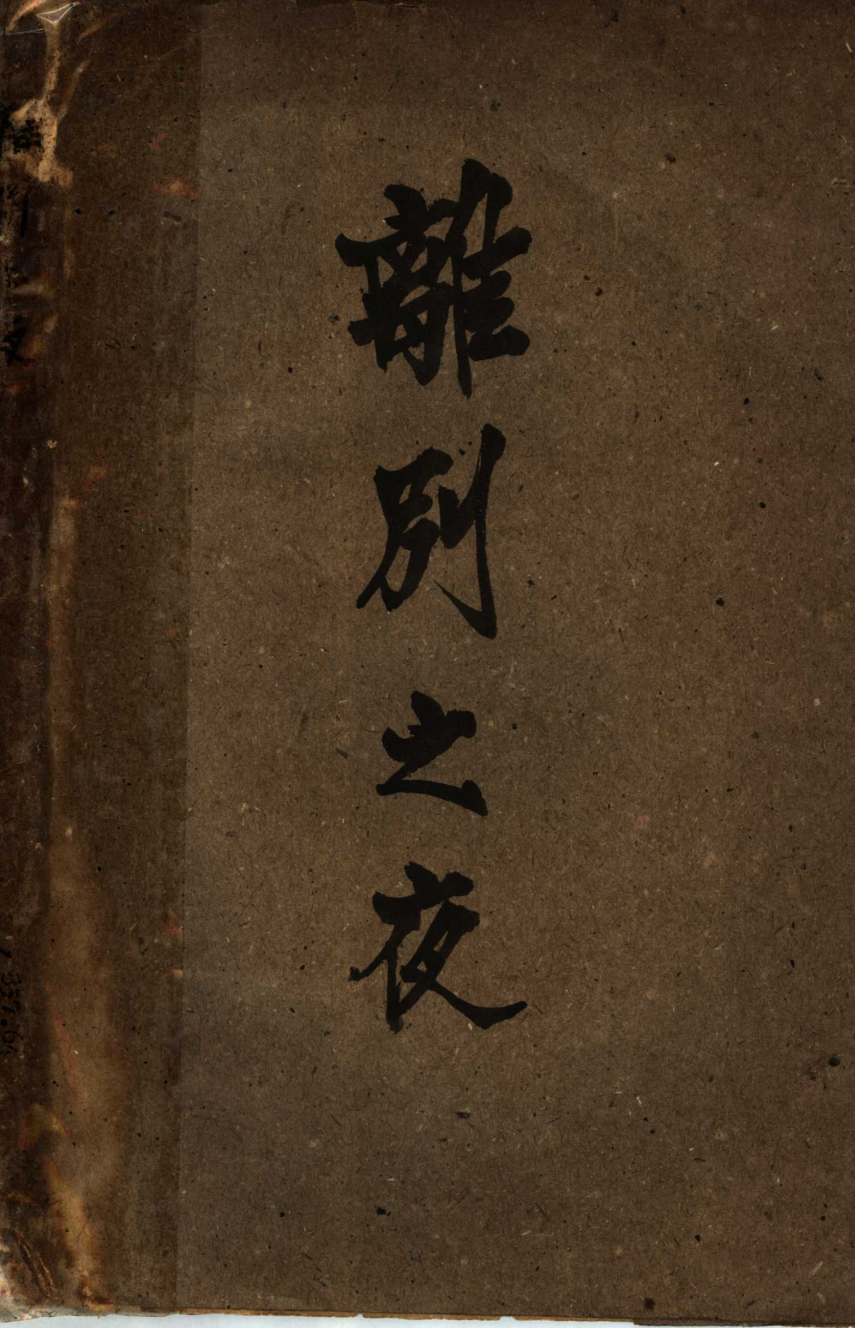 離別之夜